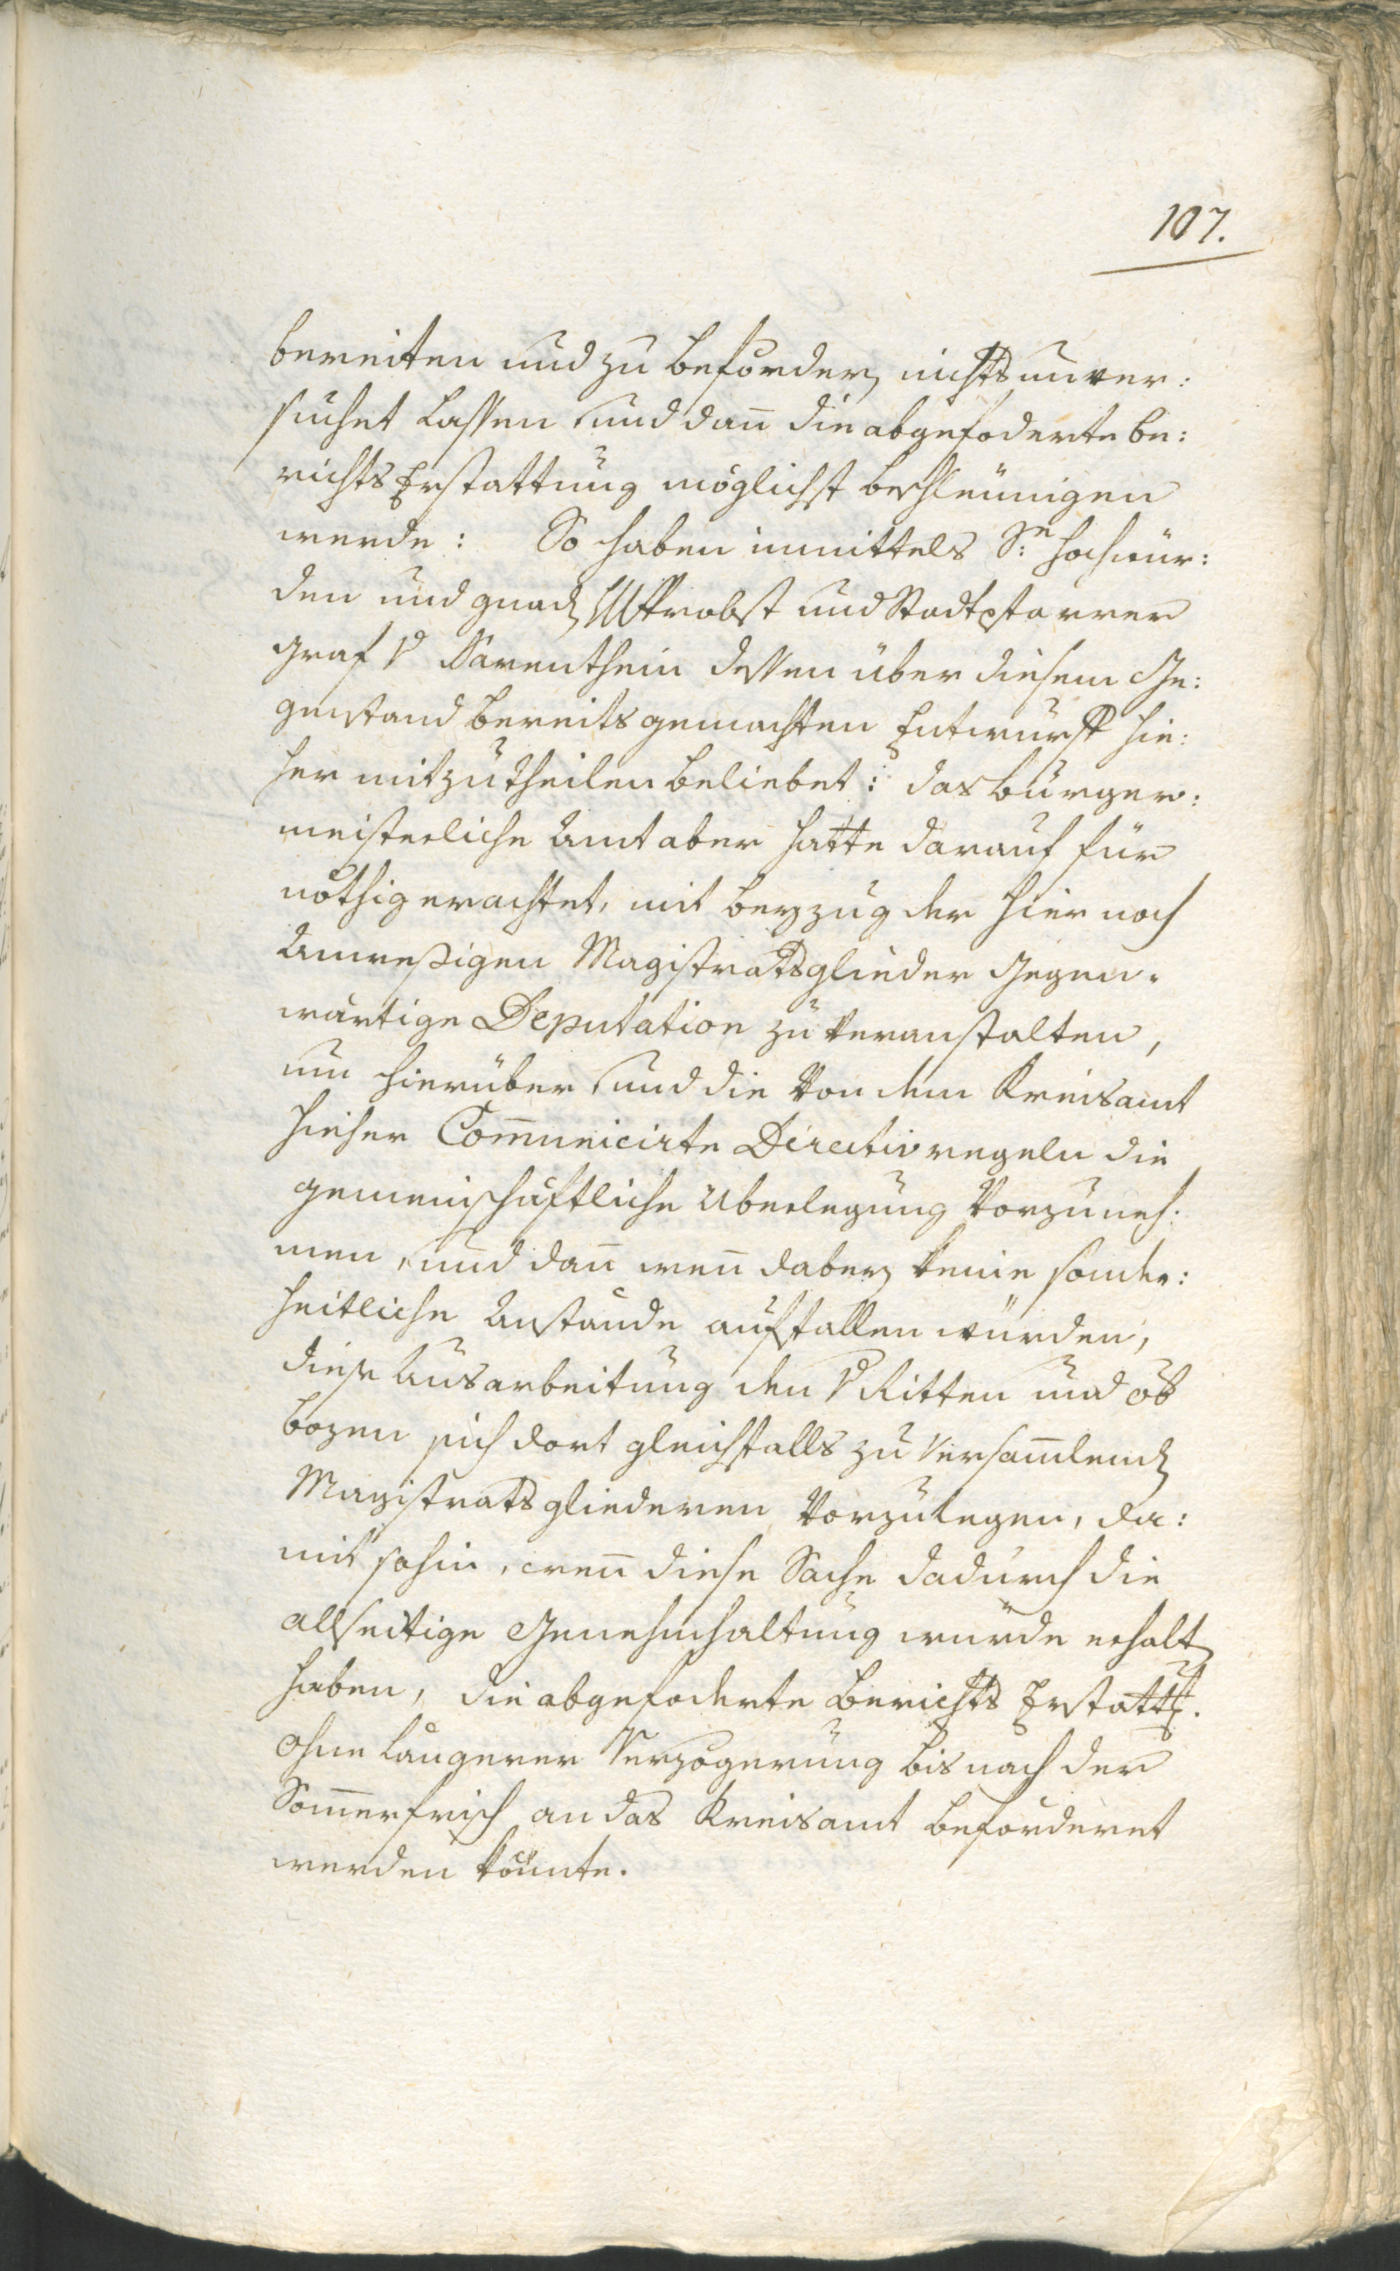 107.
bereiten und zu befördern nichts unver:
suchet lassen und dan̄ die abgefoderte be:
richts Erstattung möglichst beschleunigen
werde: So haben inmittels Se Hochwür:
den und gnaden Probst und Stadtpfarrer
Graf v Sarenthein dessen über diesem Ge:
genstand bereits gemachten Entwurf hie:
her mitzutheilen beliebet: das burger:
meisterliche Amt aber hatte darauf für
nöthig erachtet, mit beyzug der hier noch
Anweßigen Magistratsglieder gegen:
wärtige Deputation zu veranstalten,
um hierüber und die von dem Kreisamt
hieher Com̄unicirte Directivregeln die
gemeinschäftliche Überlegung vorzuneh:
men, und dan̄ wen̄ dabey keine sonder:
heitliche Anstände auffallen würden,
diese Ausarbeitung den v Ritten und ob
bozen sich dort gleichfalls zu versam̄lenden
Magistratsgliederen vorzulegen, da:
mit sohin, wen̄ diese Sache dadurch die
allseitige Genehmhaltung wurde erhalten
haben, die abgefoderte Berichts Erstattg.
ohne längerer Verzögerung bis nach der
Som̄erfrisch an das Kreisamt beförderet
werden könnte.